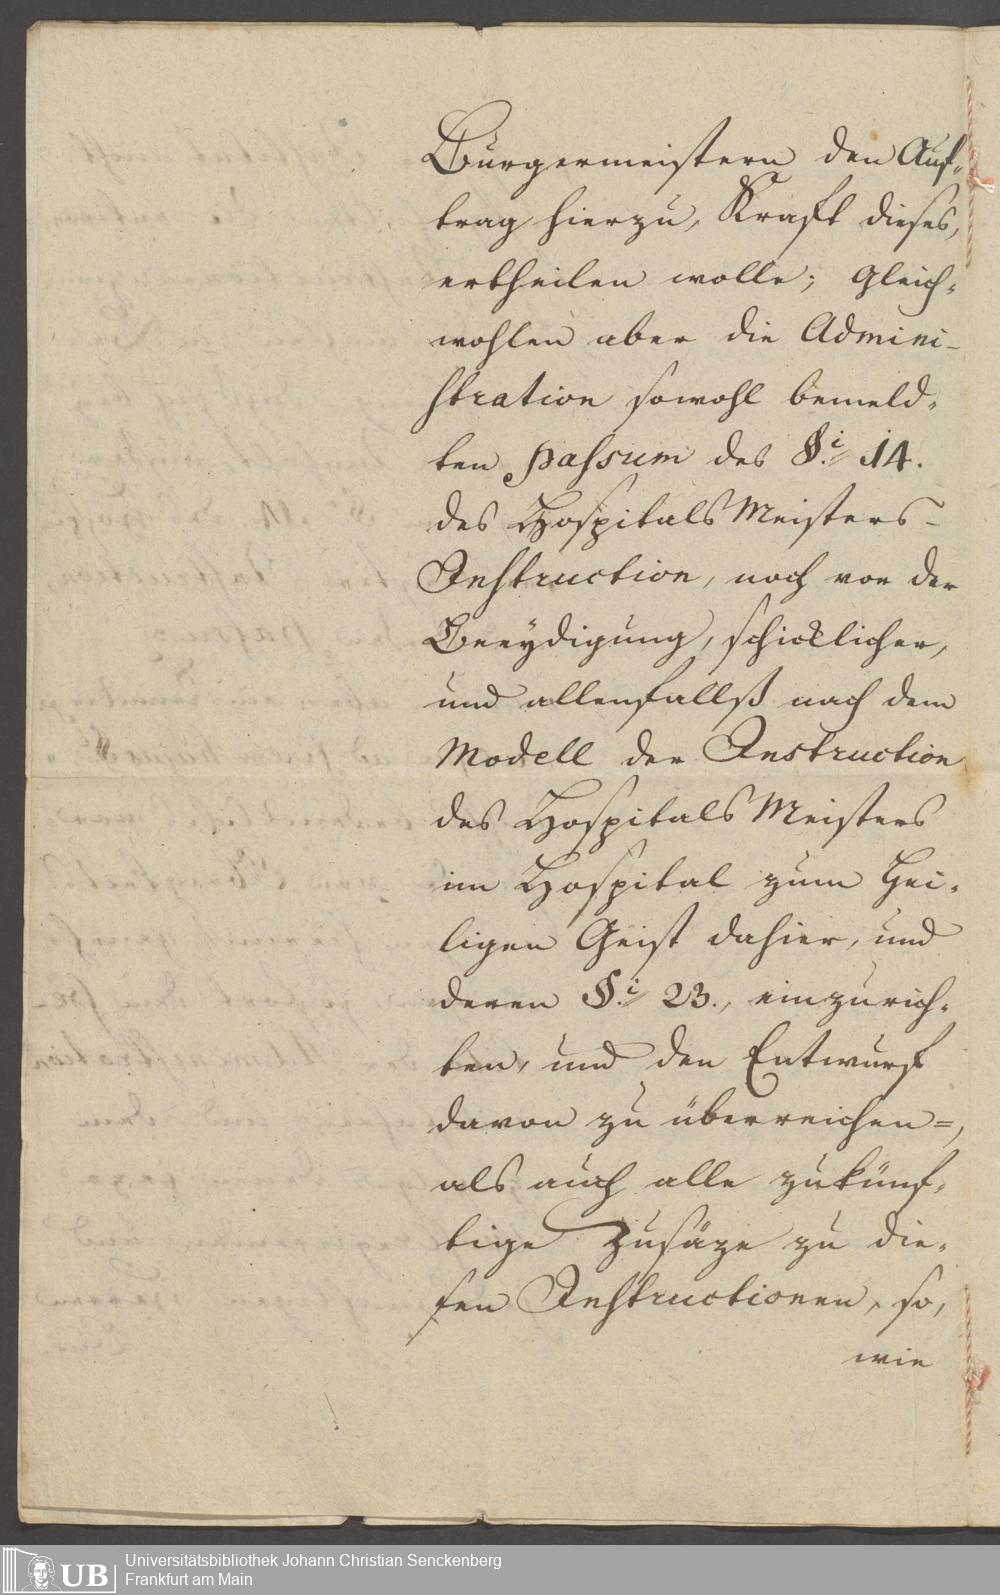 Bürgermeistern den Auf-
trag hierzu, Kraft dieses,
ertheilen wolle; gleich-
wohlen aber die Admini-
stration sowohl bemeld-
ten passum des §.i 14.
des Hospitals Meisters-
Instruction, noch vor der
Beeydigung, schicklicher,
und allenfallß nach dem
Modell der Instruction
des Hospitals Meisters
im Hospital zum Hei-
ligen Geist dahier, und
deren §.i 23., einzurich-
ten, und den Entwurf
davon zu überreichen=,
als auch alle zukünf-
tige Zusäze zu die-
sen Instructionen, so,
wie
UB
Universitätsbibliothek Johann Christian Senckenberg
Frankfurt am Main